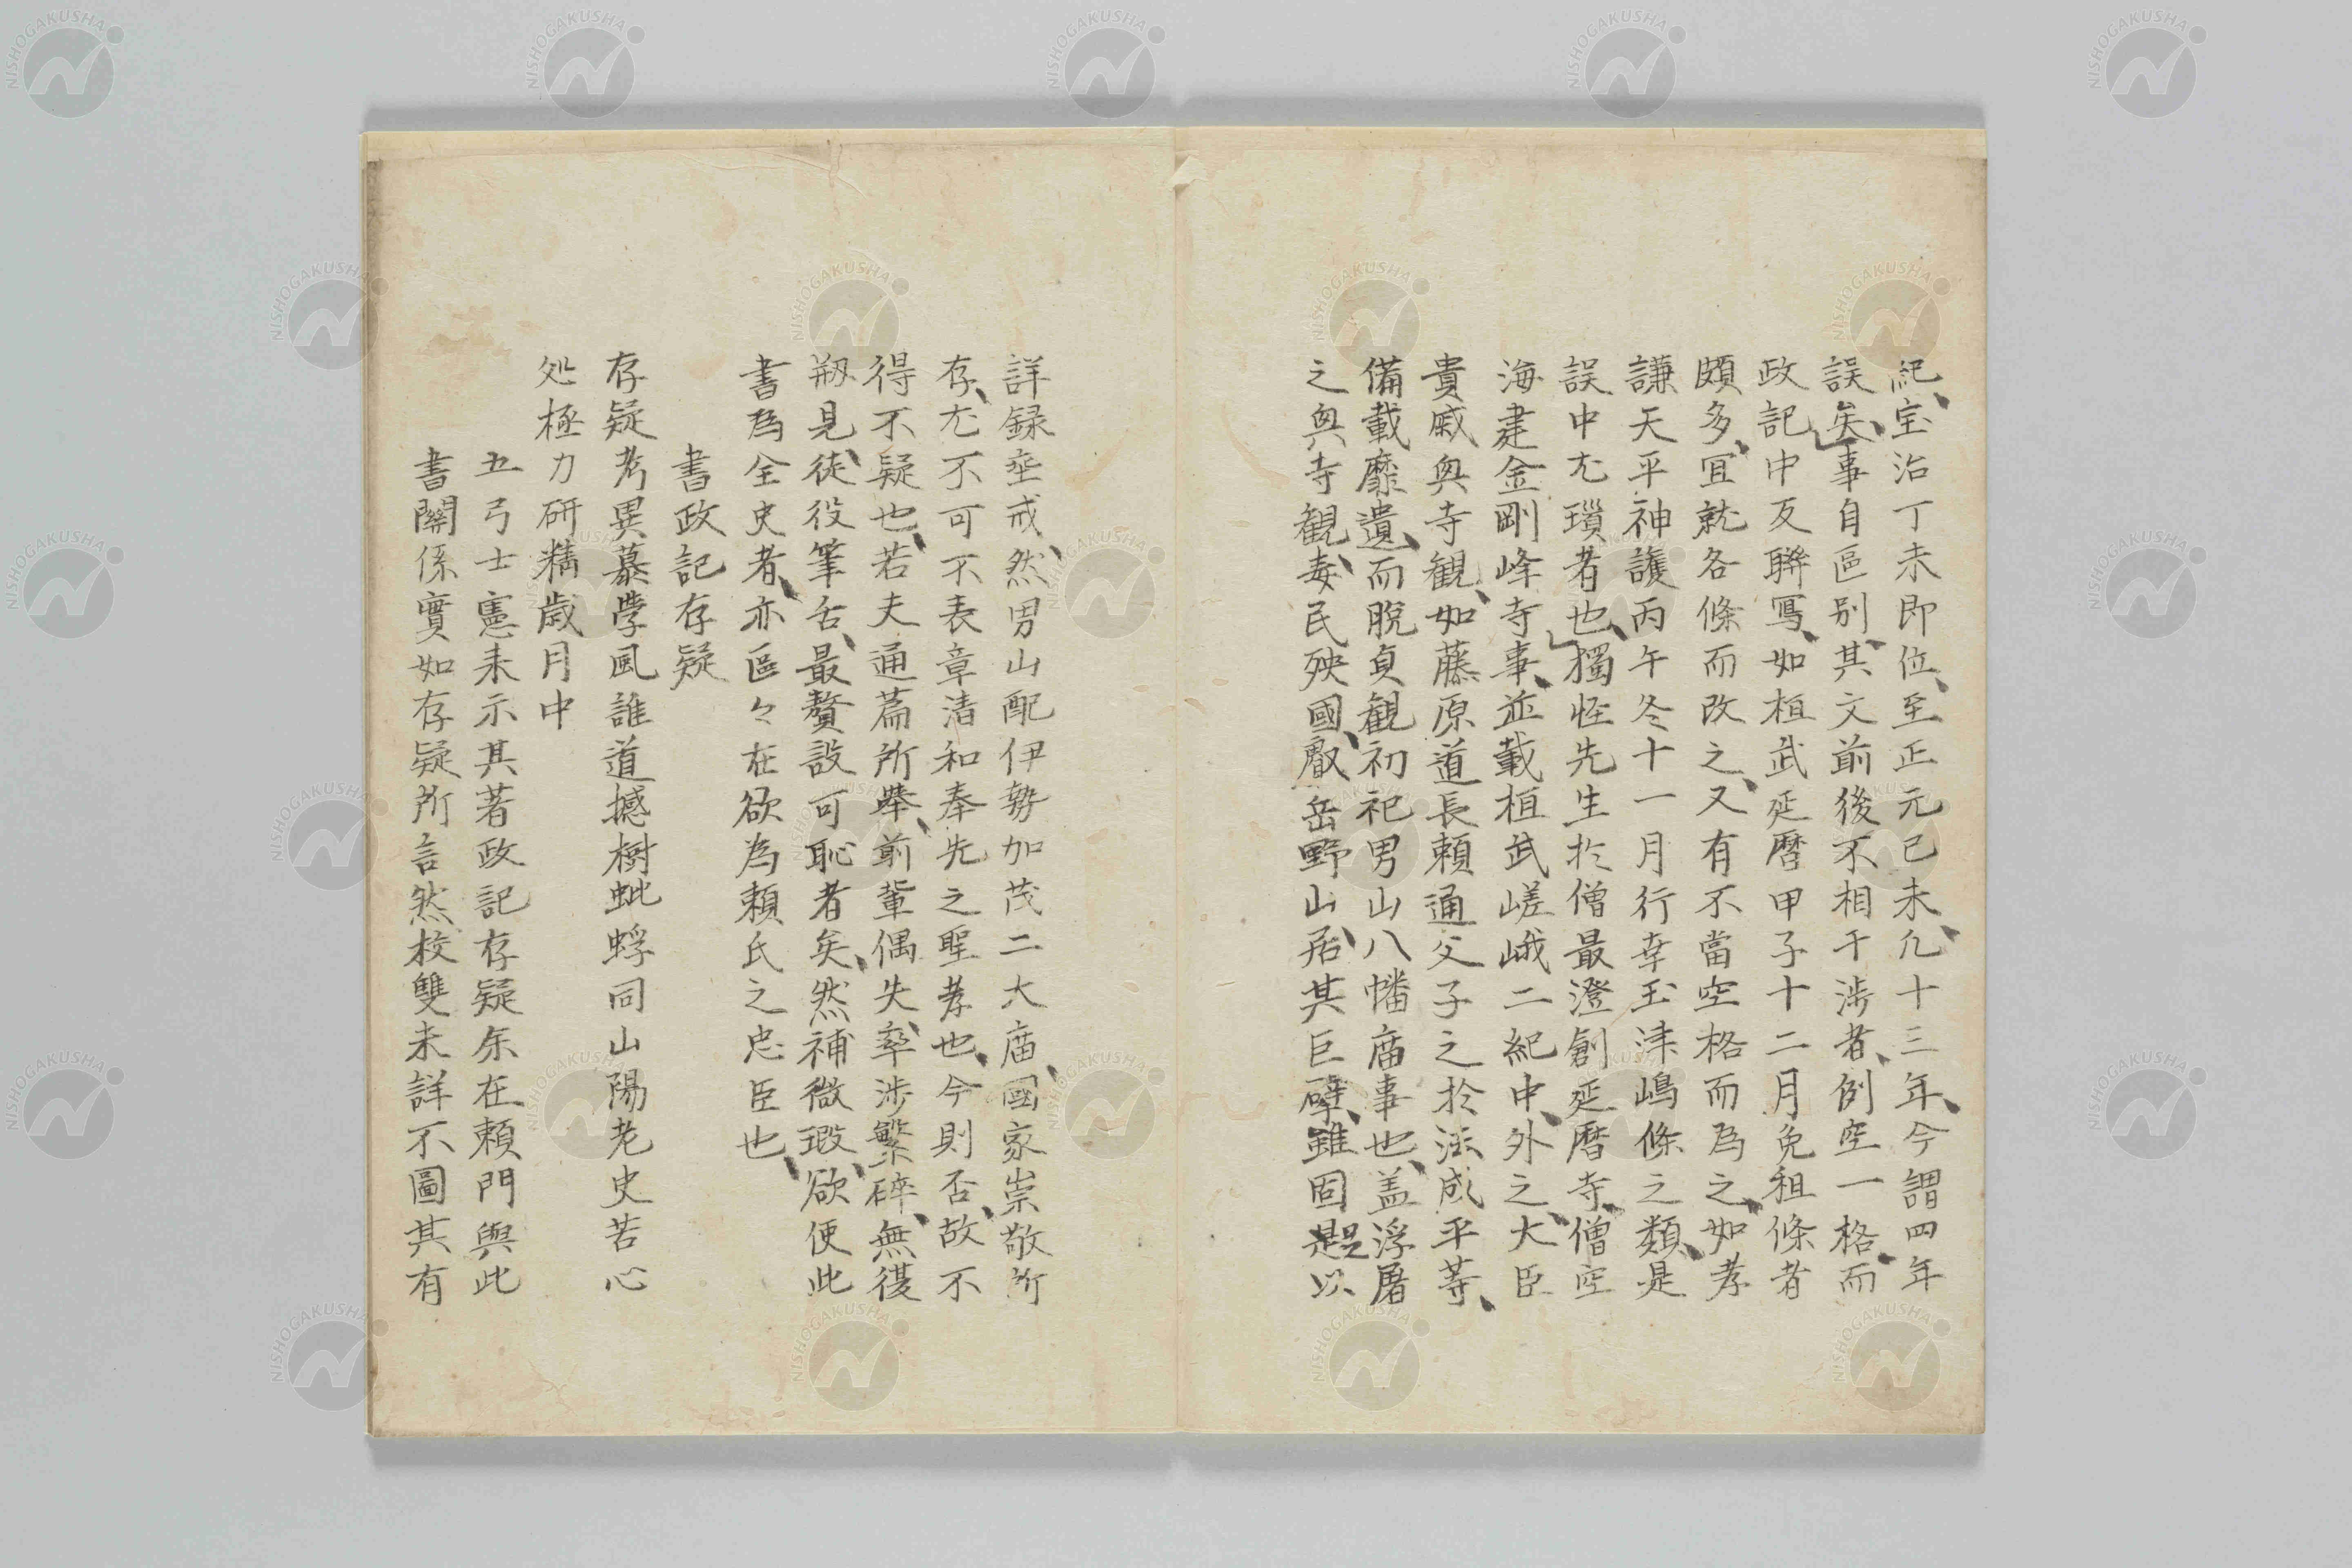 紀、宝治丁未即位、至正元己未、凢十三年、今謂四年
誤矣、事自區别、其文前後不相干渉者、例空一格、而
政記中反聯寫、如桓武延暦甲子十二月免租條者
頗多、宜就各條而改之、又有不當空格而為之、如孝
謙天平神護丙午冬十一月行幸玉津嶋條之類、是
誤中尢瑣者也、獨怪先生於僧最澄創延暦寺、僧空
海建金剛峰寺事、並載桓武嵯峨二紀中、外之、大臣
貴戚與寺観、如藤原道長頼通父子之於法成平等、
備載靡遺、而脱貞観初祀男山八幡庿事也、盖浮屠
之與寺観、毒民殃國、叡岳野山、居其巨擘、雖固是以
詳録垂戒、然男山配伊勢加茂二大庿、國家崇敬所
存、尢不可不表章清和奉先之聖孝也、今則否、故不
得不疑也、若夫通篇所舉、前輩偶失、率渉繁碎、無復
剏見、徒役筆舌、最贅設可恥者矣、然補微瑕、欲便此
書為全史者、亦區々在欲為頼氏之忠臣也、
書政記存疑
存疑考異慕學風誰道撼樹蚍蜉同山陽老史苦心
処極力研精歳月中
五弓士憲来示其著政記存疑余在頼門與此
書關係實如存疑所言然、校雙未詳不圖其有
NISHOGAKUSHA